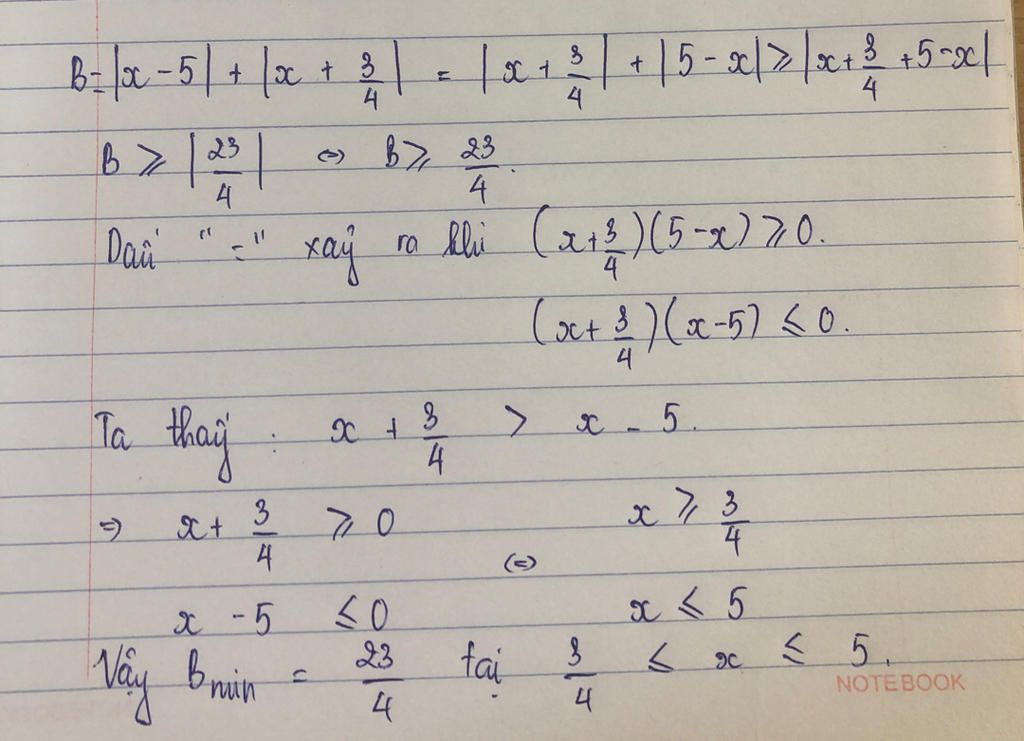 B = |x - 5| + |x + 3/4| = |x + 3/4| + |5 - x| ⩾ |x + 3/4 + 5 - x|
B ⩾ |23/4| ⇔ B ⩾ 23/4.
Dấu "=" xảy ra khi (x + 3/4)(5 - x) ⩾ 0.
(x + 3/4)(x - 5) ⩽ 0.
Ta thấy : x + 3/4 > x - 5.
⇒ x + 3/4 ⩾ 0 ⇔ x ⩾ 3/4
x - 5 ⩽ 0 x ⩽ 5
Vậy Bmin = 23/4 tại 3/4 ⩽ x ⩽ 5.
NOTEBOOK